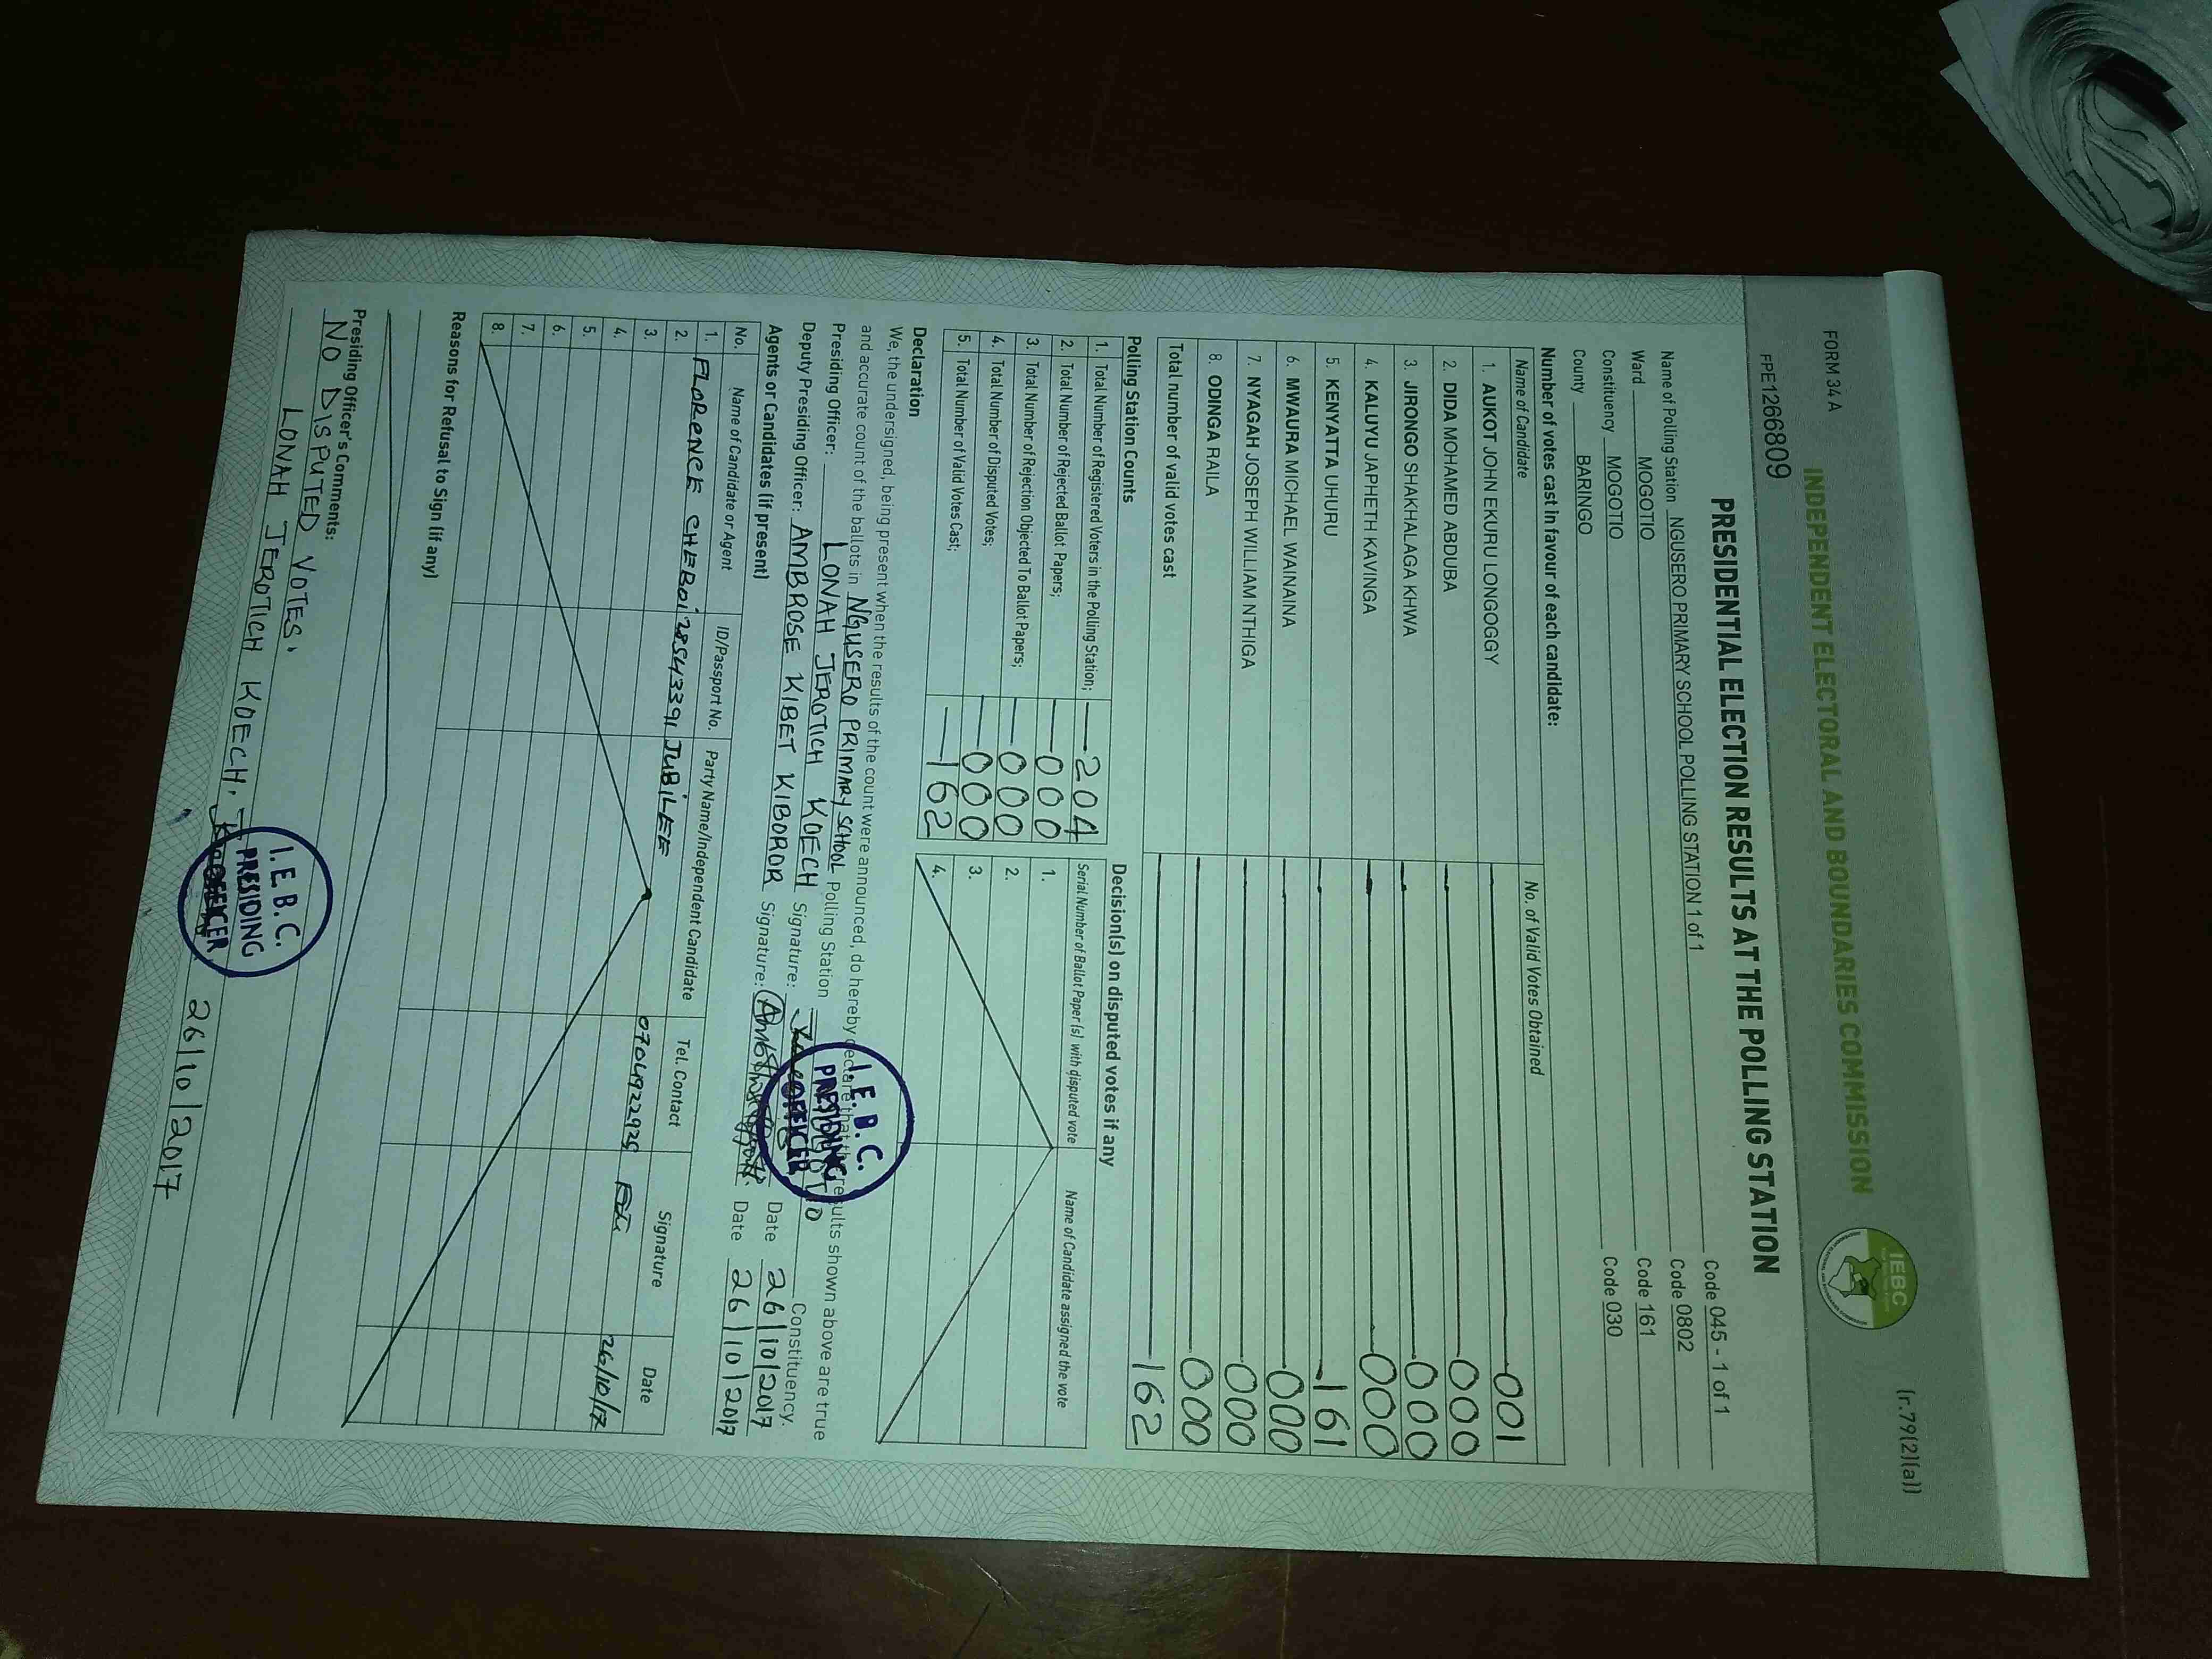 FORM 34 A
(r.79(2)(a))
INDEPENDENT ELECTORAL AND BOUNDARIES COMMISSION
IEBC
FPE1266809
PRESIDENTIAL ELECTION RESULTS AT THE POLLING STATION
Name of Polling Station NGUSERO PRIMARY SCHOOL POLLING STATION 1 of 1 Code 045 - 1 of 1
Ward MOGOTIO Code 0802
Constituency MOGOTIO Code 161
County BARINGO Code 030
Number of votes cast in favour of each candidate:
Name of Candidate No. of Valid Votes Obtained
1. AUKOT JOHN EKURU LONGOGGY 001
2. DIDA MOHAMED ABDUBA 000
3. JIRONGO SHAKHALAGA KHWA 000
4. KALUYU JAPHETH KAVINGA 000
5. KENYATTA UHURU 161
6. MWAURA MICHAEL WAINAINA 000
7. NYAGAH JOSEPH WILLIAM NTHIGA 000
8. ODINGA RAILA 000
Total number of valid votes cast 162
Polling Station Counts
1. Total Number of Registered Voters in the Polling Station; 204
2. Total Number of Rejected Ballot Papers; 000
3. Total Number of Rejection Objected To Ballot Papers; 000
4. Total Number of Disputed Votes; 000
5. Total Number of Valid Votes Cast; 162
Decision(s) on disputed votes if any
Serial Number of Ballot Paper (s) with disputed vote Name of Candidate assigned the vote
1.
2.
3.
4.
Declaration
We, the undersigned, being present when the results of the count were announced, do hereby declare that the results shown above are true
and accurate count of the ballots in NGUSERO PRIMARY SCHOOL Polling Station Constituency.
Presiding Officer: LONAH JEROTICH KOECH Signature: Date 26/10/2017
Deputy Presiding Officer: AMBROSE KIBET KIBOROR Signature: Date 26/10/2017
I.E.B.C.
PRESIDING
OFFICER
Agents or Candidates (if present)
No. Name of Candidate or Agent ID/Passport No. Party Name/Independent Candidate Tel. Contact Signature Date
1. FLORENCE CHEBOI 28543391 JUBILEE 0704922925 26/10/17
2.
3.
4.
5.
6.
7.
8.
Reasons for Refusal to Sign (if any)
Presiding Officer's Comments:
NO DISPUTED VOTES.
LONAH JEROTICH KOECH. 26/10/2017
I.E.B.C.
PRESIDING
OFFICER